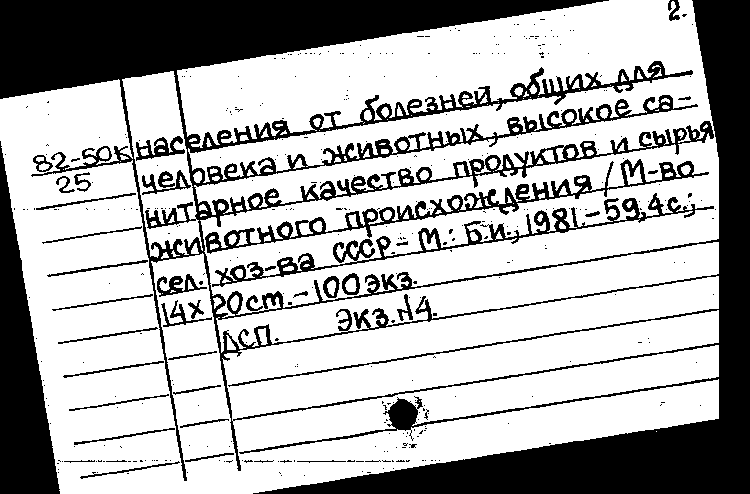 2.
82-50к населения от болезней, общих для
25 человека и животных, высокое са-
нитарное качество продуктов и сырья
животного происхождения / М-во
сел. хоз-ва СССР.- М.: Б.и., 1981.- 59,4с.;
14х20ст.-100экз.
ДСП. Экз.N4.